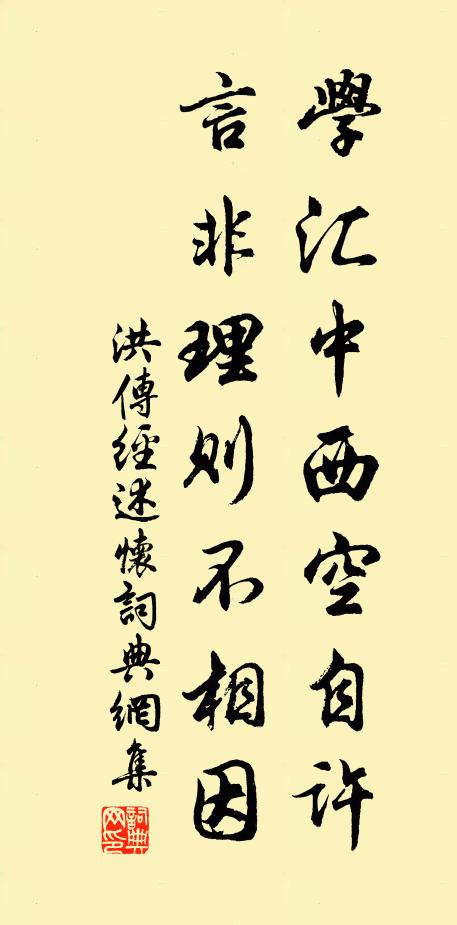 學汇中西空自許
言非理則不相因
洪傳經述懷詞典網集
詞典网印